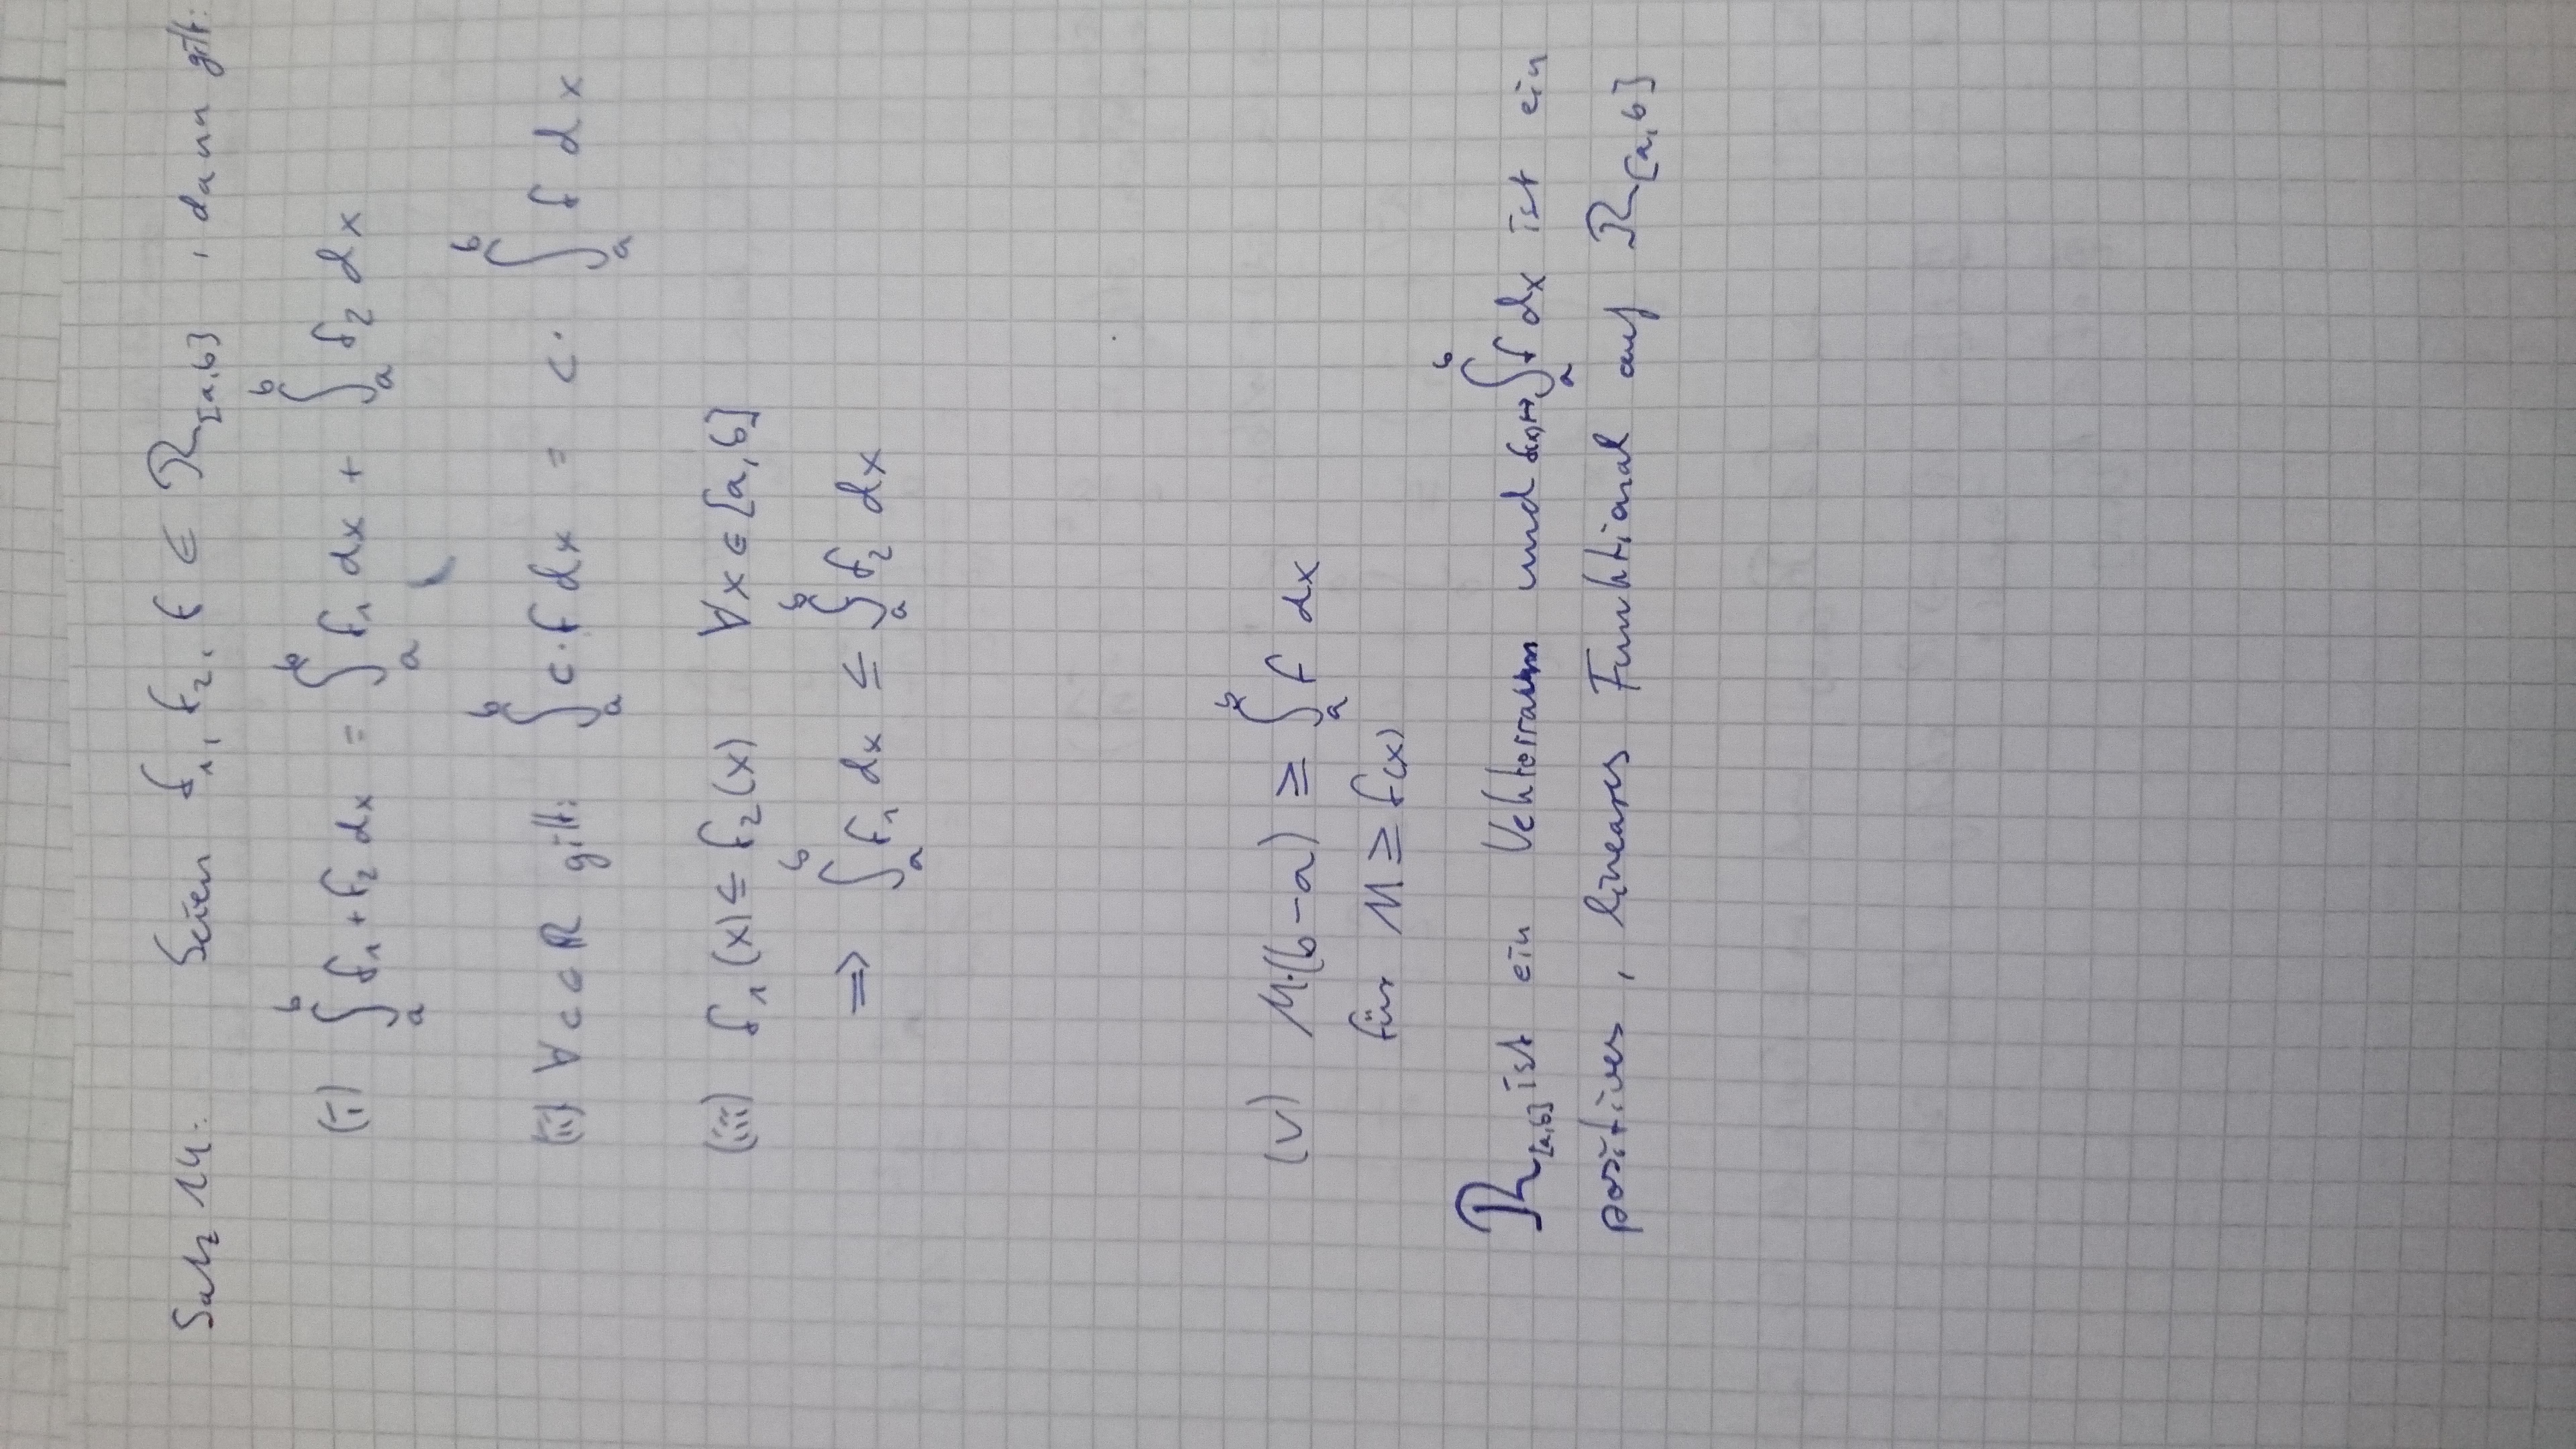 Satz 14: Seien f₁, f₂, f ∈ ℛ_[a,b] , dann gilt:
(i) ∫_a^b f₁ + f₂ dx = ∫_a^b f₁ dx + ∫_a^b f₂ dx
(ii) ∀ c ∈ ℝ gilt: ∫_a^b c · f dx = c · ∫_a^b f dx
(iii) f₁(x) ≤ f₂(x) ∀ x ∈ [a,b]
⇒ ∫_a^b f₁ dx ≤ ∫_a^b f₂ dx
(v) M·(b-a) ≥ ∫_a^b f dx
für M ≥ f(x)
ℛ_[a,b] ist ein Vektorraum und f(x)↦∫_a^b f dx ist ein
positives, lineares Funktional auf ℛ_[a,b]